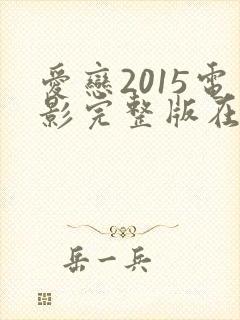 愛戀2015電
影完整版在
岳一兵